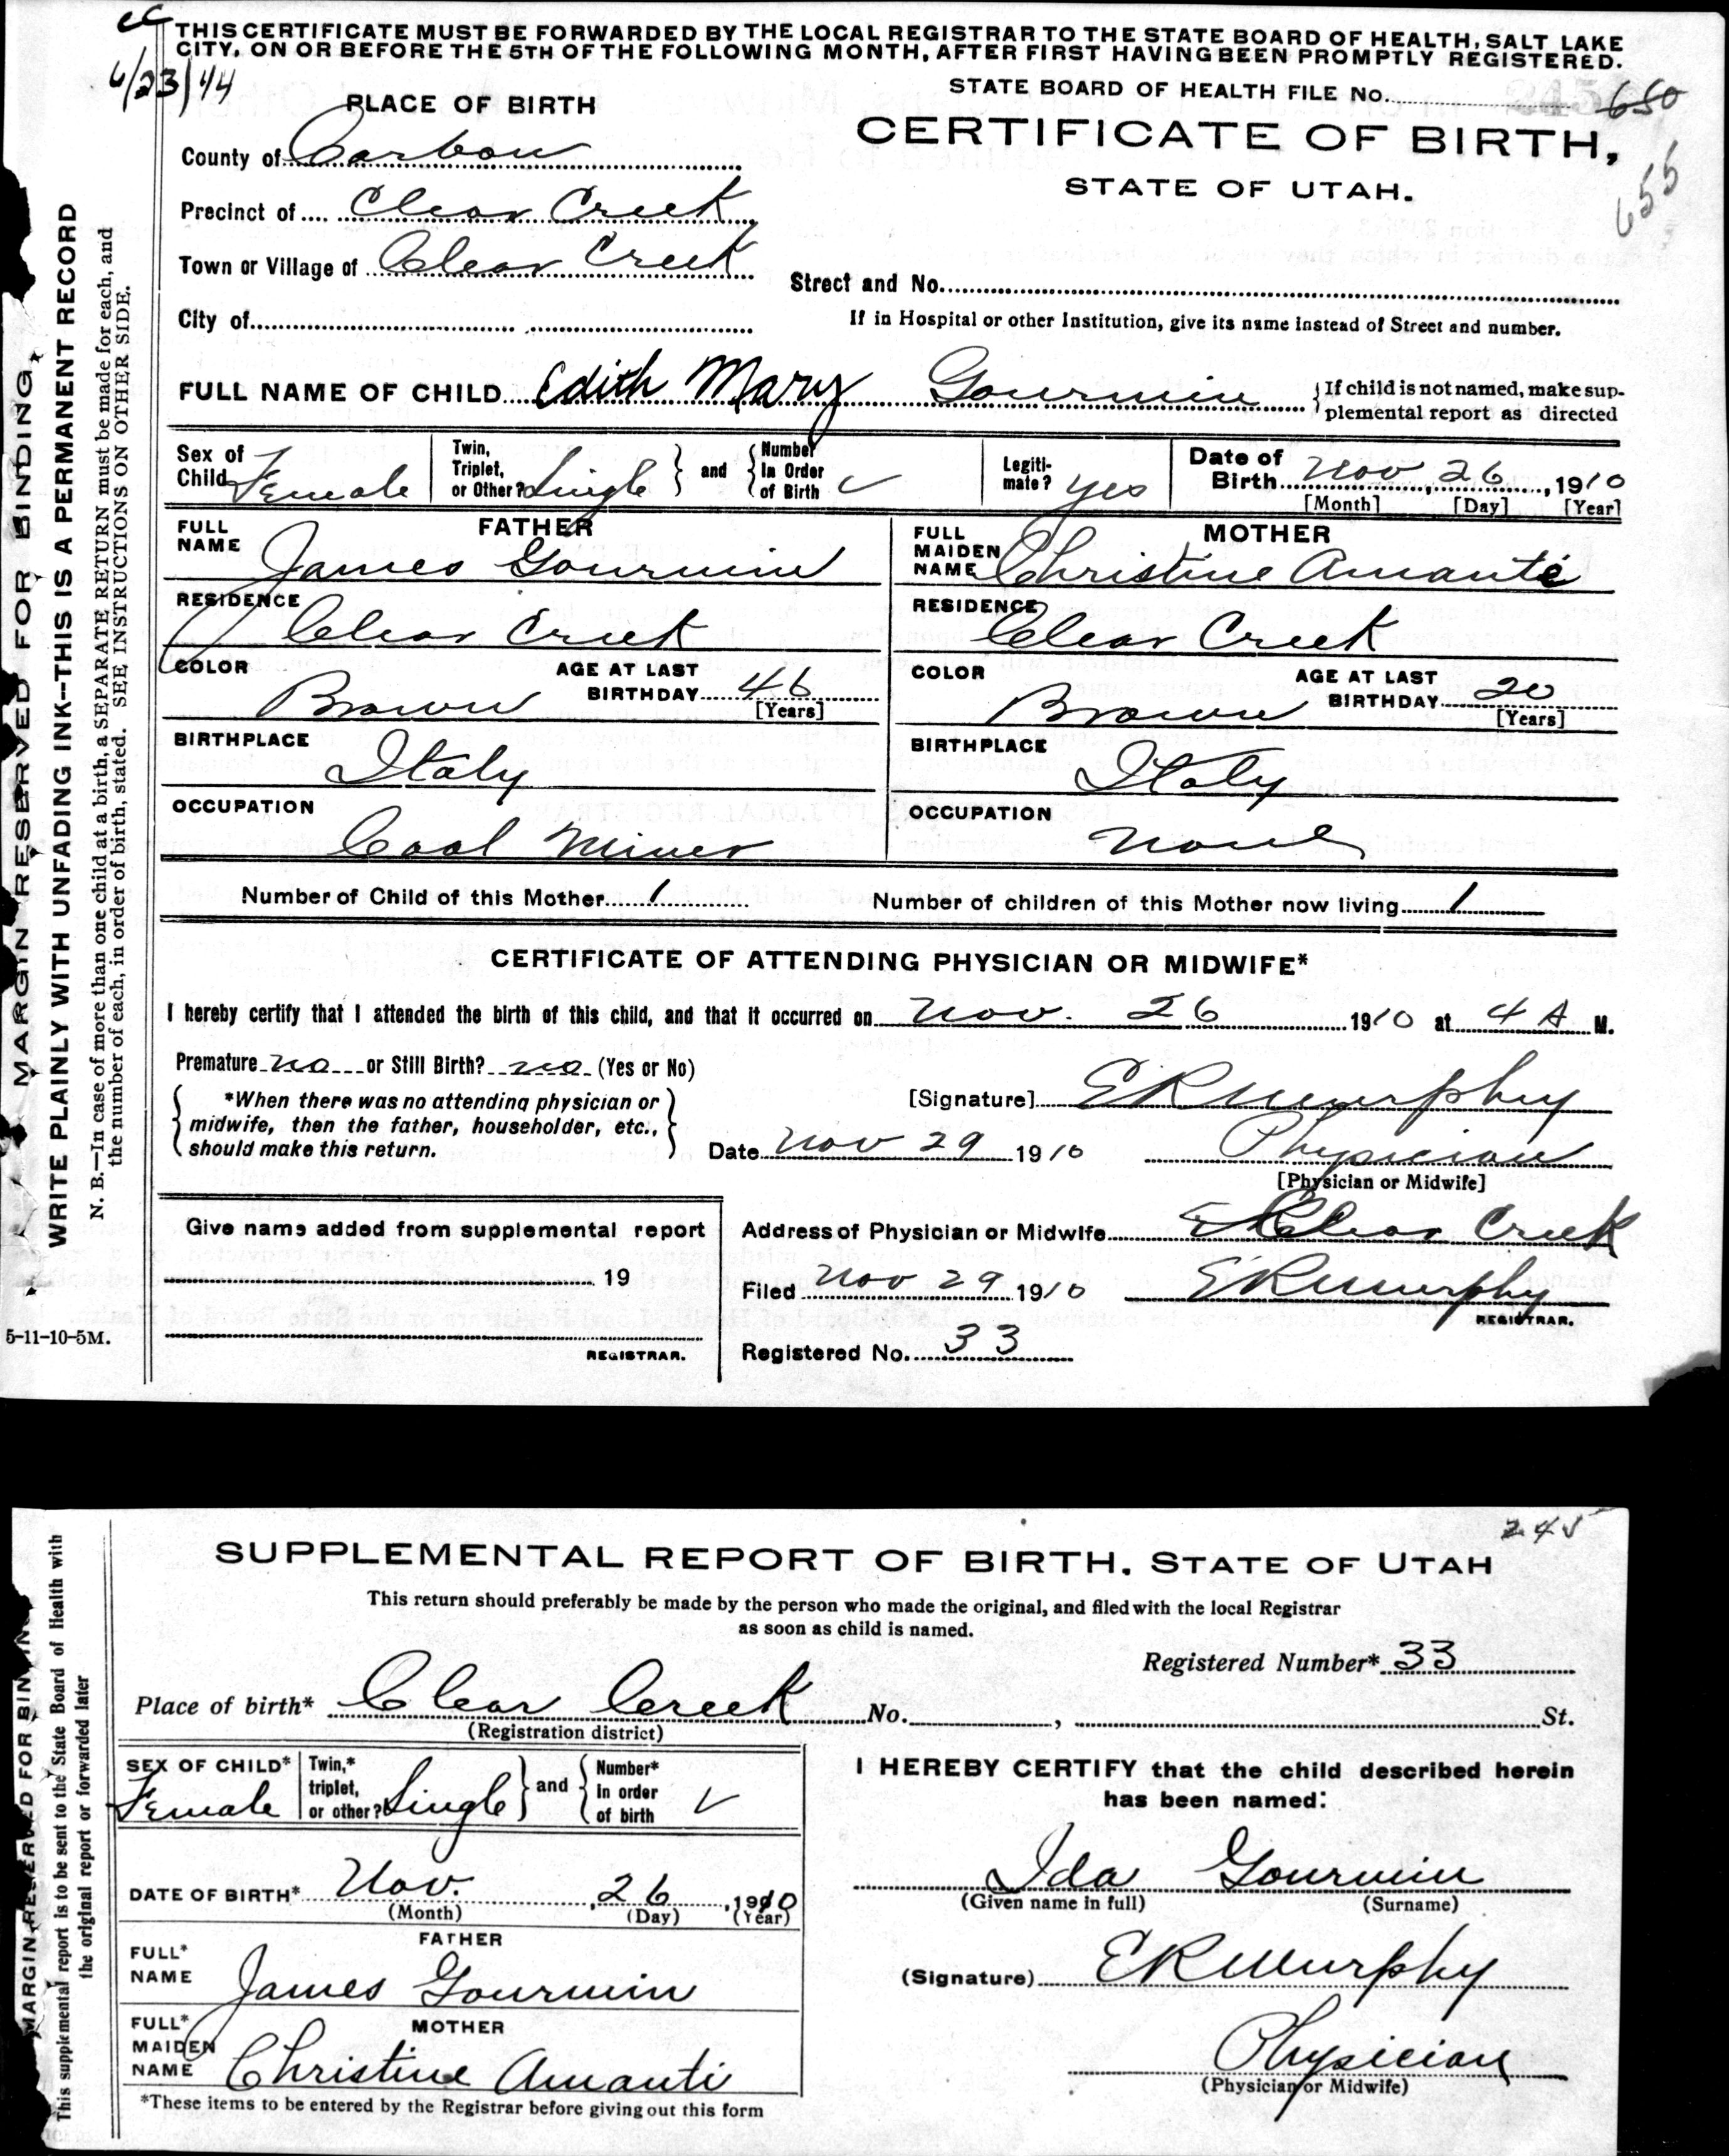 cc
6/23/44
THIS CERTIFICATE MUST BE FORWARDED BY THE LOCAL REGISTRAR TO THE STATE BOARD OF HEALTH, SALT LAKE
CITY, ON OR BEFORE THE 5TH OF THE FOLLOWING MONTH, AFTER FIRST HAVING BEEN PROMPTLY REGISTERED.
STATE BOARD OF HEALTH FILE No. 650
655
PLACE OF BIRTH
CERTIFICATE OF BIRTH,
STATE OF UTAH.
County of Carbon
Precinct of Clear Creek
Town or Village of Clear Creek
Street and No.
City of
If in Hospital or other Institution, give its name instead of Street and number.
FULL NAME OF CHILD Edith Mary Gourmin
{If child is not named, make sup-
plemental report as directed
Sex of Child Female
Twin, Triplet, or Other? Single } and { Number In Order of Birth ✓
Legiti-mate? yes
Date of Birth Nov, 26, 1910
[Month] [Day] [Year]
FATHER
FULL NAME James Gourmin
RESIDENCE Clear Creek
COLOR Brown AGE AT LAST BIRTHDAY 46 [Years]
BIRTHPLACE Italy
OCCUPATION Coal Miner
MOTHER
FULL MAIDEN NAME Christine Amanté
RESIDENCE Clear Creek
COLOR Brown AGE AT LAST BIRTHDAY 20 [Years]
BIRTHPLACE Italy
OCCUPATION None
Number of Child of this Mother 1 Number of children of this Mother now living 1
CERTIFICATE OF ATTENDING PHYSICIAN OR MIDWIFE*
I hereby certify that I attended the birth of this child, and that it occurred on Nov. 26 1910 at 4 A M.
Premature no or Still Birth? no (Yes or No)
{ *When there was no attending physician or
midwife, then the father, householder, etc.,
should make this return. }
[Signature] E R Murphy
Date Nov 29 1910 Physician
[Physician or Midwife]
Give name added from supplemental report
19
REGISTRAR.
Address of Physician or Midwife Clear Creek
Filed Nov 29 1910 E R Murphy
REGISTRAR.
Registered No. 33
MARGIN RESERVED FOR BINDING,
WRITE PLAINLY WITH UNFADING INK--THIS IS A PERMANENT RECORD
N. B.—In case of more than one child at a birth, a SEPARATE RETURN must be made for each, and
the number of each, in order of birth, stated. SEE INSTRUCTIONS ON OTHER SIDE.
5-11-10-5M.
245
SUPPLEMENTAL REPORT OF BIRTH, STATE OF UTAH
This return should preferably be made by the person who made the original, and filed with the local Registrar
as soon as child is named.
Registered Number* 33
Place of birth* Clear Creek No. , St.
(Registration district)
SEX OF CHILD* Female
Twin,* triplet, or other? Single } and { Number* in order of birth ✓
DATE OF BIRTH* Nov. , 26 , 1910
(Month) (Day) (Year)
FATHER
FULL* NAME James Gourmin
MOTHER
FULL* MAIDEN NAME Christine Amanti
*These items to be entered by the Registrar before giving out this form
I HEREBY CERTIFY that the child described herein
has been named:
Ida Gourmin
(Given name in full) (Surname)
(Signature) E R Murphy
Physician
(Physician or Midwife)
MARGIN RESERVED FOR BINDING
This supplemental report is to be sent to the State Board of Health with
the original report or forwarded later